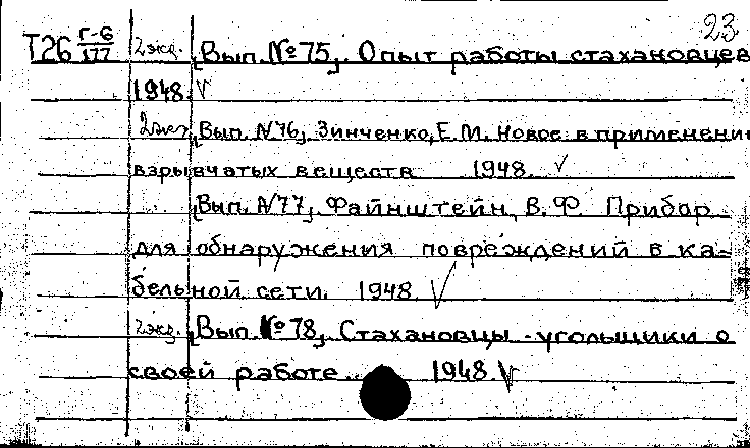 23
Т26 Г-6/177 2 экз. [Вып. №75]. Опыт работы стахановцев
1948. V
2 экз [Вып. №76], Зинченко, Е.М. Новое в применении
взрывчатых веществ 1948. V
[Вып. №77], Файнштейн, В.Ф. Прибор
для обнаружения повреждений в ка=
бельной сети. 1948 V
2 экз. [Вып. №78], Стахановцы-угольщики о
своей работе. 1948. V